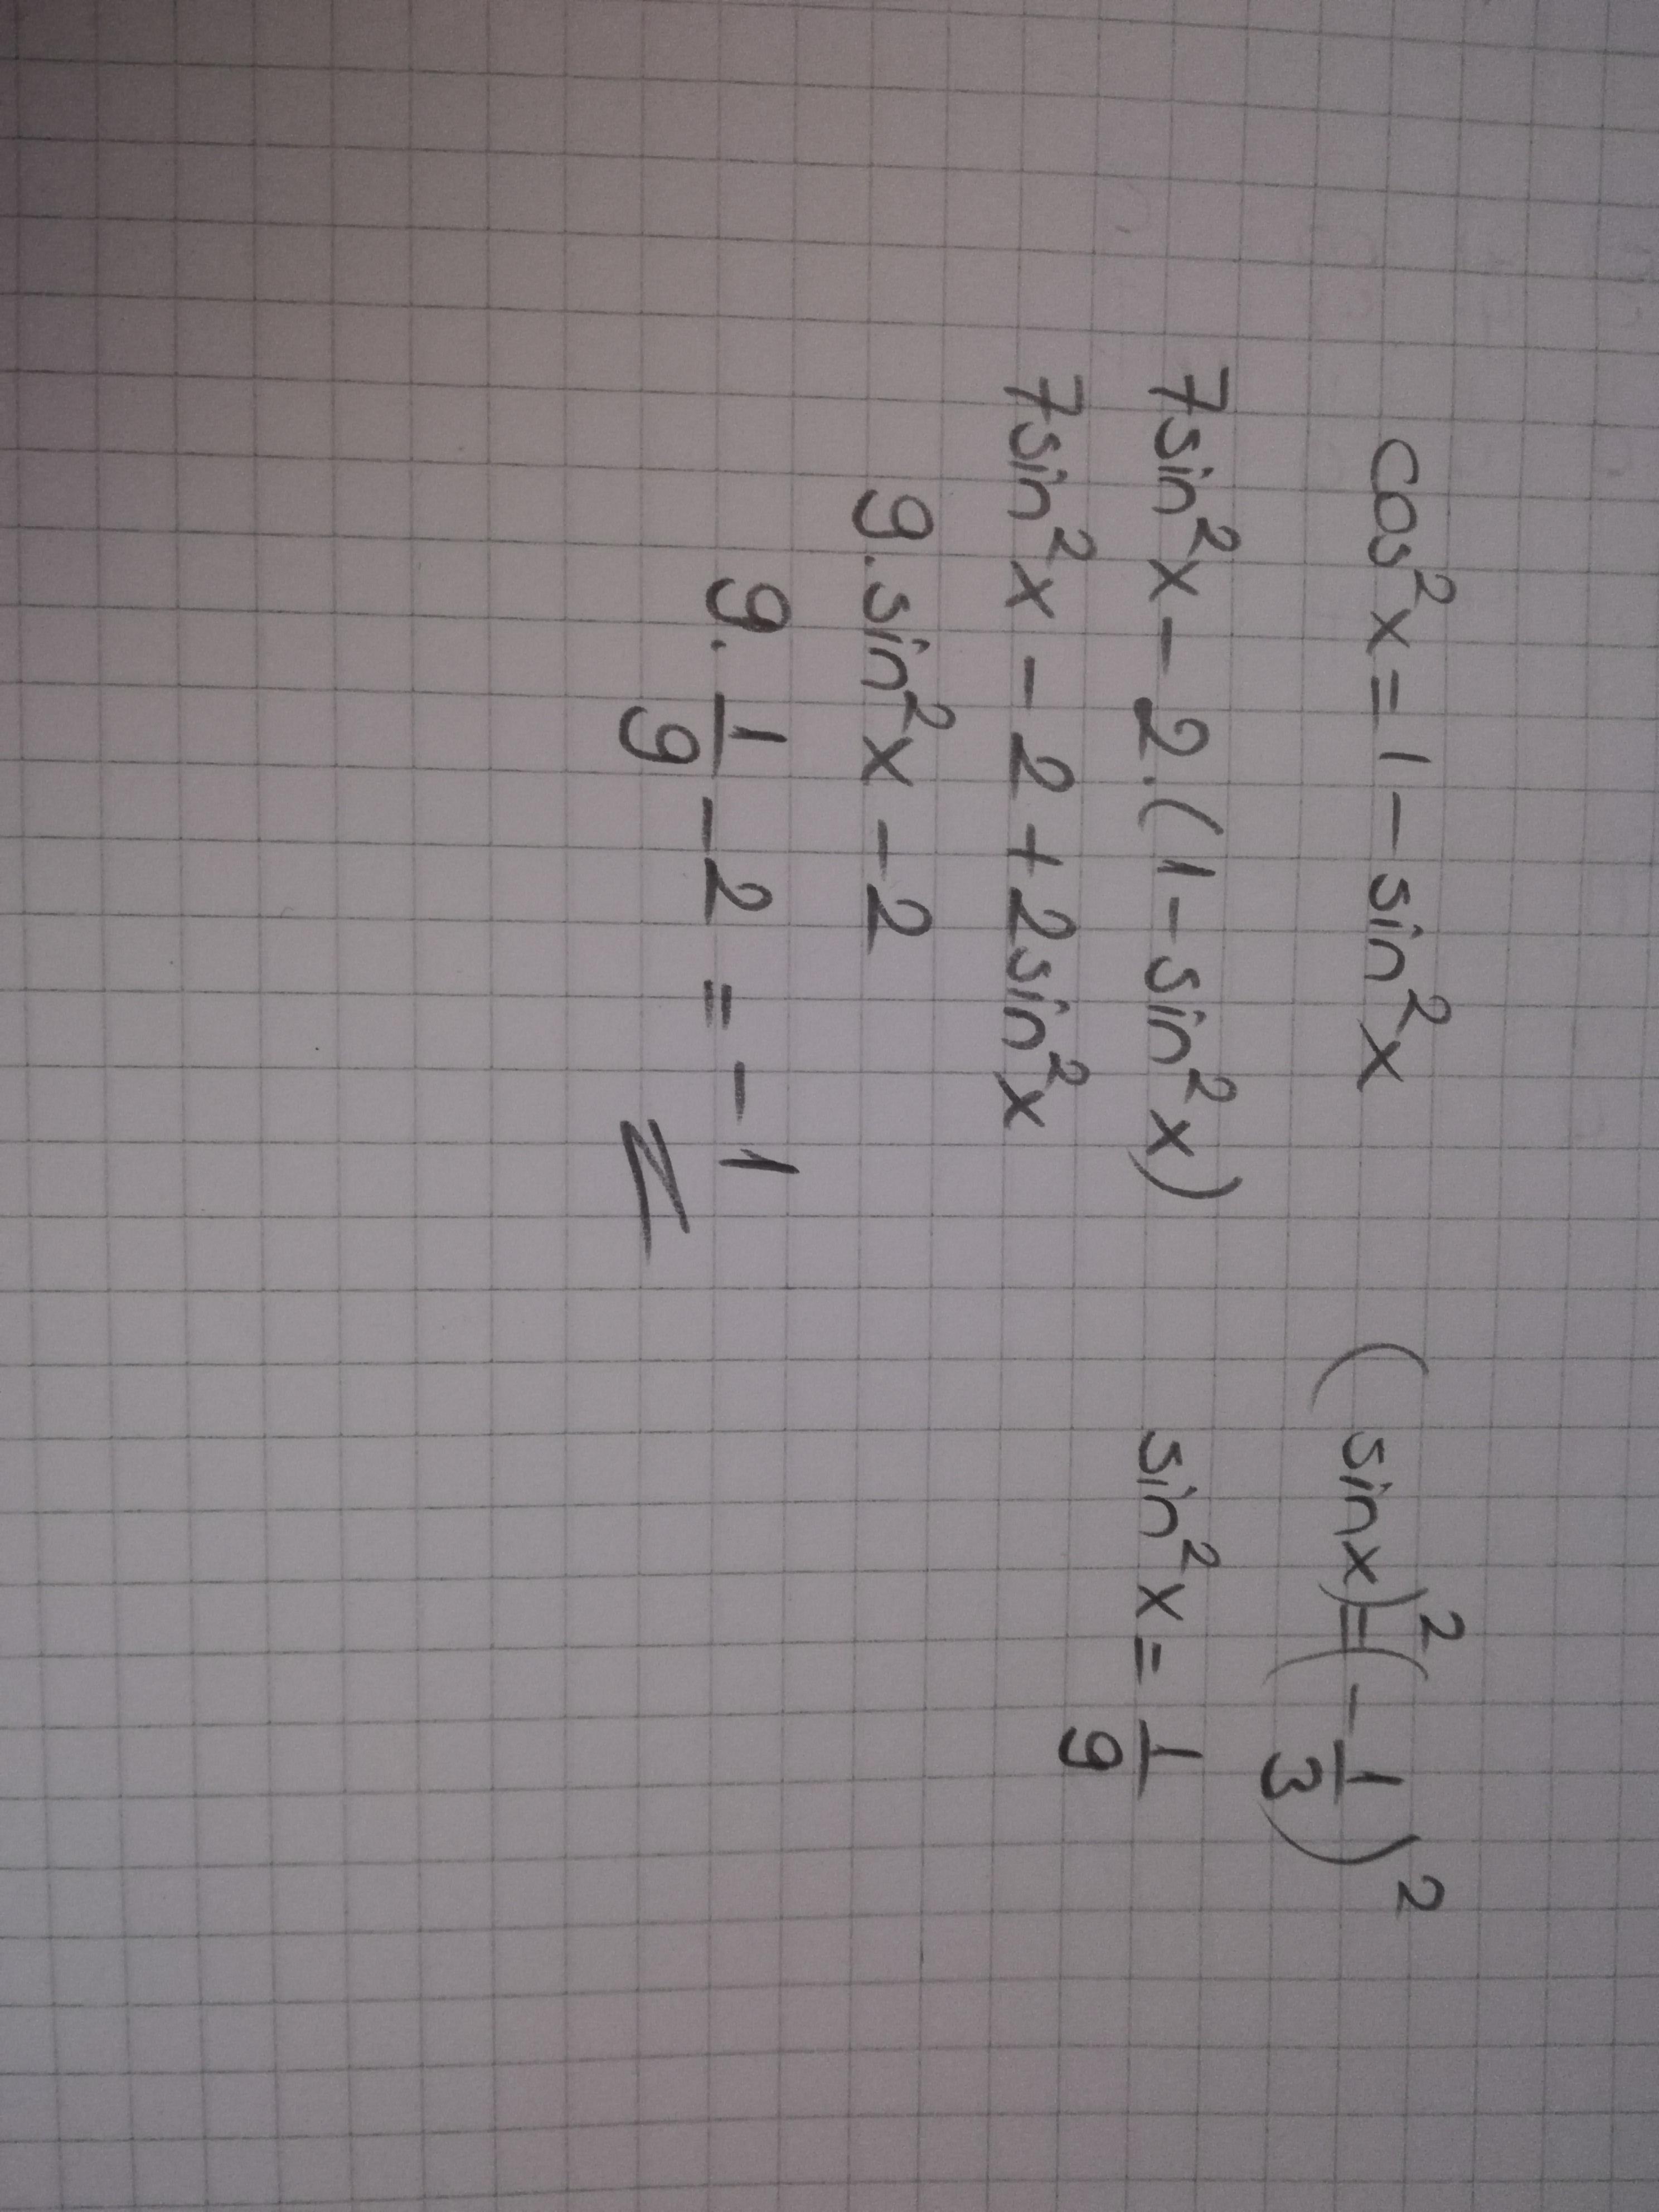 cos²x = 1 - sin²x
7sin²x - 2.(1 - sin²x)
7sin²x - 2 + 2sin²x
9.sin²x - 2
9. 1/9 - 2 = -1
(sinx)² = (-1/3)²
sin²x = 1/9